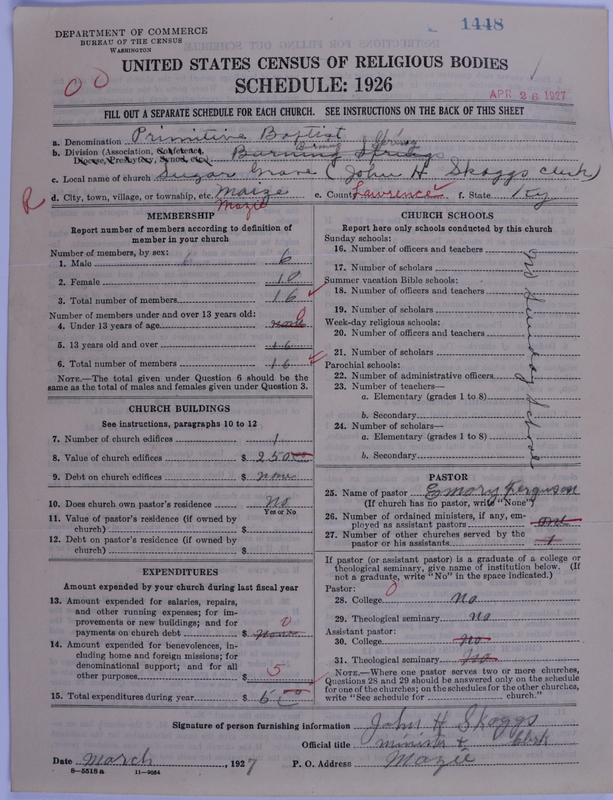 1448
DEPARTMENT OF COMMERCE
BUREAU OF THE CENSUS
WASHINGTON
UNITED STATES CENSUS OF RELIGIOUS BODIES
SCHEDULE: 1926
APR 26 1927
FILL OUT A SEPARATE SCHEDULE FOR EACH CHURCH. SEE INSTRUCTIONS ON THE BACK OF THIS SHEET
a. Denomination Primitive Baptist
b. Division (Association, Conference, Diocese, Presbytery, Synod, etc.) Burning Springs
c. Local name of church Sugar Grove (John H Skaggs clerk)
d. City, town, village, or township, etc. Maize Mazie e. County Lawrence f. State Ky
MEMBERSHIP
Report number of members according to definition of
member in your church
Number of members, by sex:
1. Male 6
2. Female 10
3. Total number of members 16
Number of members under and over 13 years old:
4. Under 13 years of age none 0
5. 13 years old and over 16
6. Total number of members 16
NOTE.—The total given under Question 6 should be the
same as the total of males and females given under Question 3.
CHURCH BUILDINGS
See instructions, paragraphs 10 to 12
7. Number of church edifices 1
8. Value of church edifices $ 250.00
9. Debt on church edifices $ none
10. Does church own pastor's residence No
Yes or No
11. Value of pastor's residence (if owned by
church) $
12. Debt on pastor's residence (if owned by
church) $
EXPENDITURES
Amount expended by your church during last fiscal year
13. Amount expended for salaries, repairs,
and other running expenses; for im-
provements or new buildings; and for
payments on church debt $ none 0
14. Amount expended for benevolences, in-
cluding home and foreign missions; for
denominational support; and for all
other purposes $ 5
15. Total expenditures during year $ 5.00
CHURCH SCHOOLS
Report here only schools conducted by this church
Sunday schools:
16. Number of officers and teachers
17. Number of scholars
Summer vacation Bible schools:
18. Number of officers and teachers
19. Number of scholars
Week-day religious schools:
20. Number of officers and teachers
21. Number of scholars
Parochial schools:
22. Number of administrative officers
23. Number of teachers—
a. Elementary (grades 1 to 8)
b. Secondary
24. Number of scholars—
a. Elementary (grades 1 to 8)
b. Secondary
no Sunday School
PASTOR
25. Name of pastor Emory Ferguson
(If church has no pastor, write "None")
26. Number of ordained ministers, if any, em-
ployed as assistant pastors
27. Number of other churches served by the
pastor or his assistants 1
If pastor (or assistant pastor) is a graduate of a college or
theological seminary, give name of institution below. (If
not a graduate, write "No" in the space indicated.)
Pastor:
28. College No
29. Theological seminary No
Assistant pastor:
30. College No
31. Theological seminary No
NOTE.—Where one pastor serves two or more churches,
Questions 28 and 29 should be answered only on the schedule
for one of the churches; on the schedules for the other churches,
write "See schedule for church."
Signature of person furnishing information John H Skaggs
Official title minister & clerk
Date March, 1927 P. O. Address Mazie
8—5518a 11—9054